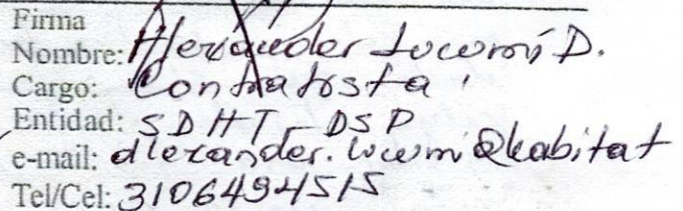 Firma
Nombre: Alexander Lucumí D.
Cargo: Contratista
Entidad: SDHT - DSP
e-mail: alexander.lucumi@habitat
Tel/Cel: 3106494515